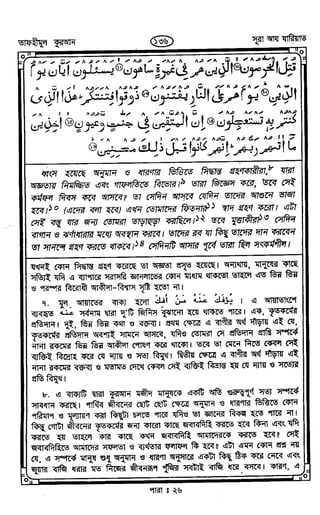 তাফহীমুল কুরআন
১৩৬
সূরা আয যারিয়াত
قُتِلَ الْخَرّٰصُوْنَ ۞ الَّذِيْنَ هُمْ فِيْ غَمْرَةٍ سَاهُوْنَ ۞ يَسْئَلُوْنَ اَيَّانَ يَوْمُ
الدِّيْنِ ۞ يَوْمَ هُمْ عَلَى النَّارِ يُفْتَنُوْنَ ۞ ذُوْقُوْا فِتْنَتَكُمْ ۗ هٰذَا الَّذِيْ
كُنْتُمْ بِهٖ تَسْتَعْجِلُوْنَ ۞ اِنَّ الْمُتَّقِيْنَ فِيْ جَنّٰتٍ وَّعُيُوْنٍ ۞ اٰخِذِيْنَ
مَا اٰتٰىهُمْ رَبُّهُمْ ۗ اِنَّهُمْ كَانُوْا قَبْلَ ذٰلِكَ مُحْسِنِيْنَ ۞
ধ্বংস হয়েছে অনুমান ও ধারণার ভিত্তিতে সিদ্ধান্ত গ্রহণকারীরা,৮ যারা
অজ্ঞতায় নিমজ্জিত এবং গাফলতিতে বিভোর।৯ তারা জিজ্ঞেস করে, তবে সেই
কর্মফল দিবস কবে আসবে? তা সেদিন আসবে যেদিন তাদের আগুনে ভাজা
হবে।১০ (এদের বলা হবে) এখন তোমাদের ফিতনার১১ স্বাদ গ্রহণ করো। এটা
সেই বস্তু যার জন্য তোমরা তাড়াহুড়া করছিলে।১২ তবে মুত্তাকীরা১৩ সেদিন
বাগান ও ঝর্ণাধারার মধ্যে অবস্থান করবে। তাদের রব যা কিছু তাদের দান করবেন
তা সানন্দে গ্রহণ করতে থাকবে।১৪ সেদিনটি আসার পূর্বে তারা ছিল সৎকর্মশীল।
যখনই কোন সিদ্ধান্ত গ্রহণ করেছে তা অজ্ঞতা প্রসূত হয়েছে। অন্যথায়, মানুষের কাছে
সত্যিই যদি এ ব্যাপারে সরাসরি জ্ঞানলাভের কোন মাধ্যম থাকতো তাহলে এত ভিন্ন ভিন্ন
ও পরস্পর বিরোধী আকীদা-বিশ্বাস সৃষ্টি হতো না।
৭. মূল আয়াতের বাক্য হলো يُؤْفَكُ عَنْهُ مَنْ أُفِكَ । এ আয়াতাংশে
عَنْهُ সর্বনাম দ্বারা দু'টি জিনিস বুঝানো হয়ে থাকতে পারে। এক, কৃতকর্মের
প্রতিদান। দুই, ভিন্ন ভিন্ন কথা ও বক্তব্য। প্রথম ক্ষেত্রে এ বাণীর অর্থ দাঁড়ায় এই যে,
কৃতকর্মের প্রতিদান অবশ্যই সামনে আসবে, যদিও তোমরা সে প্রতিদান প্রাপ্তি সম্পর্কে
নানা রকমের ভিন্ন ভিন্ন আকীদা পোষণ করে থাকো। তবে তা মেনে নিতে কেবল সেই
ব্যক্তিই বিদ্রোহ করে যে ন্যায় ও সত্য বিমুখ। দ্বিতীয় ক্ষেত্রে এ বাণীর অর্থ দাঁড়ায় এই
নানা রকমের বক্তব্য ও মতামত দেখে কেবল সেই ব্যক্তিই বিভ্রান্ত হয় যে ন্যায় ও সত্যের
প্রতি বিমুখ।
৮. এ বাক্যটি দ্বারা কুরআন মজীদ মানুষকে একটি অতি গুরুত্বপূর্ণ সত্য সম্পর্কে
সাবধান করছে। পার্থিব জীবনের ছোট ছোট ক্ষেত্রে অনুমান ও ধারণার ভিত্তিতে কোন
পরিমাণ ও মূল্যায়ণ করা কিছুটা চলতে পারে যদিও তা জ্ঞানের বিকল্প হতে পারে না।
কিন্তু গোটা জীবনের কৃতকর্মের জন্য কারো কাছে জবাবদিহি করতে হবে কিনা এবং যদি
করতে হয় তাহলে কার কাছে কখন জবাবদিহি আমাদেরকে করতে হবে? সেই
জবাবদিহিতে আমাদের সফলতা ও ব্যর্থতার ফলাফল কি হবে? এটা এমন কোন প্রশ্ন নয়
যে, এ সম্পর্কে মানুষ শুধু অনুমান ও ধারণা অনুসারে একটা কিছু ঠিক করে নেবে এবং
জুয়ার বাজি ধরার মত নিজের জীবনরূপ পুঁজির সবটাই বাজি ধরে বসবে। কারণ, এ
পারা : ২৬